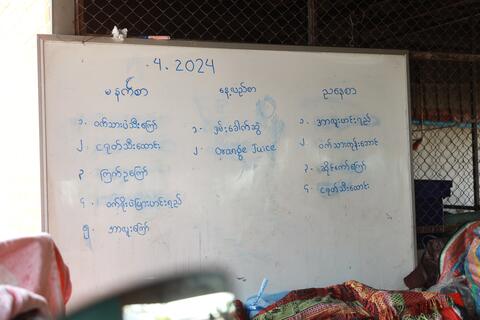 .4.2024
မနက်စာ
၁. ဝက်သားပဲသီးကြော်
၂. ငရုတ်သီးထောင်း
၃. ကြက်ဥကြော်
၄. ဝက်ရိုးပဲပြားဟင်းရည်
၅. အာလူးကြော်
နေ့လည်စာ
၁. အုန်းခေါက်ဆွဲ
၂. Orange Juice
ညနေစာ
၁. အာလူးဟင်းရည်
၂.
၃.
၄. ငရုတ်သီးထောင်း